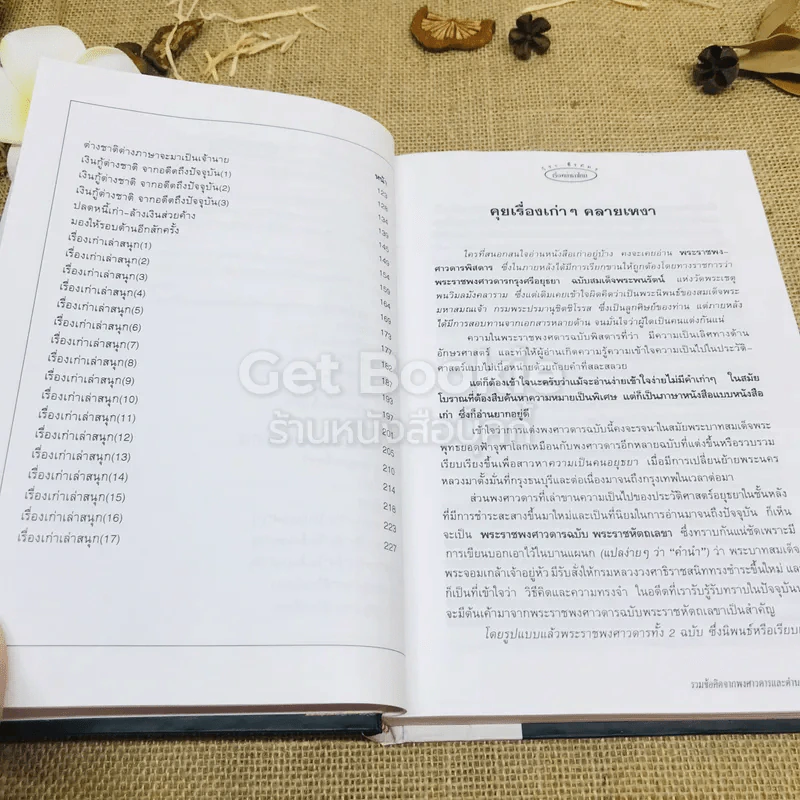 หน้า
ต่างชาติต่างภาษาจะมาเป็นเจ้านาย 123
เงินกู้ต่างชาติ จากอดีตถึงปัจจุบัน(1) 128
เงินกู้ต่างชาติ จากอดีตถึงปัจจุบัน(2) 134
เงินกู้ต่างชาติ จากอดีตถึงปัจจุบัน(3) 139
ปลดหนี้เก่า-ล้างเงินส่วยค้าง
มองให้รอบด้านอีกสักครั้ง 145
เรื่องเก่าเล่าสนุก(1) 149
เรื่องเก่าเล่าสนุก(2) 154
เรื่องเก่าเล่าสนุก(3) 159
เรื่องเก่าเล่าสนุก(4) 164
เรื่องเก่าเล่าสนุก(5) 169
เรื่องเก่าเล่าสนุก(6) 173
เรื่องเก่าเล่าสนุก(7) 177
เรื่องเก่าเล่าสนุก(8) 182
เรื่องเก่าเล่าสนุก(9) 187
เรื่องเก่าเล่าสนุก(10) 193
เรื่องเก่าเล่าสนุก(11) 197
เรื่องเก่าเล่าสนุก(12) 201
เรื่องเก่าเล่าสนุก(13) 205
เรื่องเก่าเล่าสนุก(14) 210
เรื่องเก่าเล่าสนุก(15) 214
เรื่องเก่าเล่าสนุก(16) 218
เรื่องเก่าเล่าสนุก(17) 223
227
คุยเรื่องเก่าๆ คลายเหงา
ใครที่สนอกสนใจอ่านหนังสือเก่าอยู่บ้าง คงจะเคยอ่าน พระราชพง-
ศาวดารพิสดาร ซึ่งในภายหลังได้มีการเรียกขานให้ถูกต้องโดยทางราชการว่า
พระราชพงศาวดารกรุงศรีอยุธยา ฉบับสมเด็จพระพนรัตน์ แห่งวัดพระเชตุ
พนวิมลมังคลาราม ซึ่งแต่เดิมเคยเข้าใจผิดคิดว่าเป็นพระนิพนธ์ของสมเด็จพระ
มหาสมณเจ้า กรมพระปรมานุชิตชิโนรส ซึ่งเป็นลูกศิษย์ของท่าน แต่ภายหลัง
ได้มีการสอบทานจากเอกสารหลายด้าน จนมั่นใจว่าผู้ใดเป็นคนแต่งกันแน่
ความในพระราชพงศาวดารฉบับพิสดารที่ว่า มีความเป็นเลิศทางด้าน
อักษรศาสตร์ และทำให้ผู้อ่านเกิดความรู้ความเข้าใจความเป็นไปในประวัติ-
ศาสตร์แบบไม่เบื่อหน่ายด้วยถ้อยคำที่สละสลวย
แต่ก็ต้องเข้าใจนะครับว่าแม้จะอ่านง่ายเข้าใจง่ายไม่มีคำเก่าๆ ในสมัย
โบราณที่ต้องสืบค้นหาความหมายเป็นพิเศษ แต่ก็เป็นภาษาหนังสือแบบหนังสือ
เก่า ซึ่งก็อ่านยากอยู่ดี
เข้าใจว่าการแต่งพงศาวดารฉบับนี้คงจะรจนาในสมัยพระบาทสมเด็จพระ
พุทธยอดฟ้าจุฬาโลกเหมือนกับพงศาวดารอีกหลายฉบับที่แต่งขึ้นหรือรวบรวม
เรียบเรียงขึ้นเพื่อสาวหาความเป็นคนอยุธยา เมื่อมีการเปลี่ยนย้ายพระนคร
หลวงมาตั้งมั่นที่กรุงธนบุรีและต่อเนื่องมาจนถึงกรุงเทพในเวลาต่อมา
ส่วนพงศาวดารที่เล่าขานความเป็นไปของประวัติศาสตร์อยุธยาในชั้นหลัง
ที่มีการชำระสะสางขึ้นมาใหม่และเป็นที่นิยมในการอ่านมาจนถึงปัจจุบัน ก็เห็น
จะเป็น พระราชพงศาวดารฉบับ พระราชหัตถเลขา ซึ่งทราบกันแน่ชัดเพราะมี
การเขียนบอกเอาไว้ในบานแผนก (แปลง่ายๆ ว่า "คำนำ") ว่า พระบาทสมเด็จ
พระจอมเกล้าเจ้าอยู่หัว มีรับสั่งให้กรมหลวงวงศาธิราชสนิททรงชำระขึ้นใหม่ และ
ก็เป็นที่เข้าใจว่า วิธีคิดและความทรงจำ ในอดีตที่เรารับรู้รับทราบในปัจจุบัน
จะมีต้นเค้ามาจากพระราชพงศาวดารฉบับพระราชหัตถเลขาเป็นสำคัญ
โดยรูปแบบแล้วพระราชพงศาวดารทั้ง 2 ฉบับ ซึ่งนิพนธ์หรือเรียบ
รวมข้อคิดจากพงศาวดารและตำนาน
Get Bookie
ร้านหนังสือ